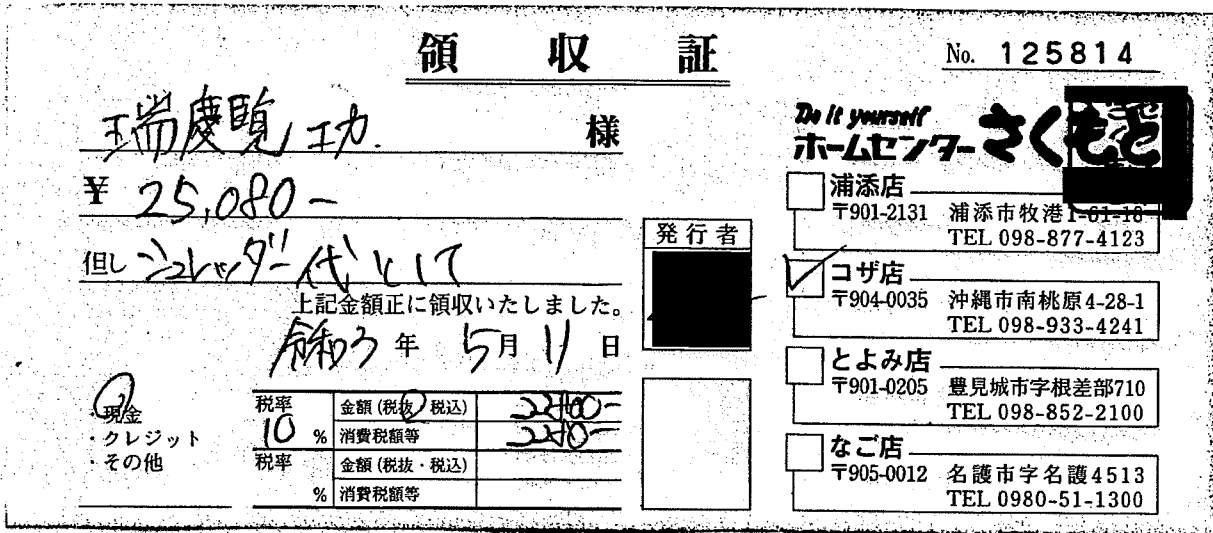 領収証
No. 125814
瑞慶覧 功 様
¥ 25,080-
但し シュレッダー代として
上記金額正に領収いたしました。
令和3年 5月 11日
現金
・クレジット
・その他
税率 10 %
金額(税抜・税込) 22800-
消費税額等 2280-
税率 %
金額(税抜・税込)
消費税額等
発行者
Do it yourself
ホームセンターさくもと
浦添店
〒901-2131 浦添市牧港1-61-18
TEL 098-877-4123
コザ店
〒904-0035 沖縄市南桃原4-28-1
TEL 098-933-4241
とよみ店
〒901-0205 豊見城市字根差部710
TEL 098-852-2100
なご店
〒905-0012 名護市字名護4513
TEL 0980-51-1300